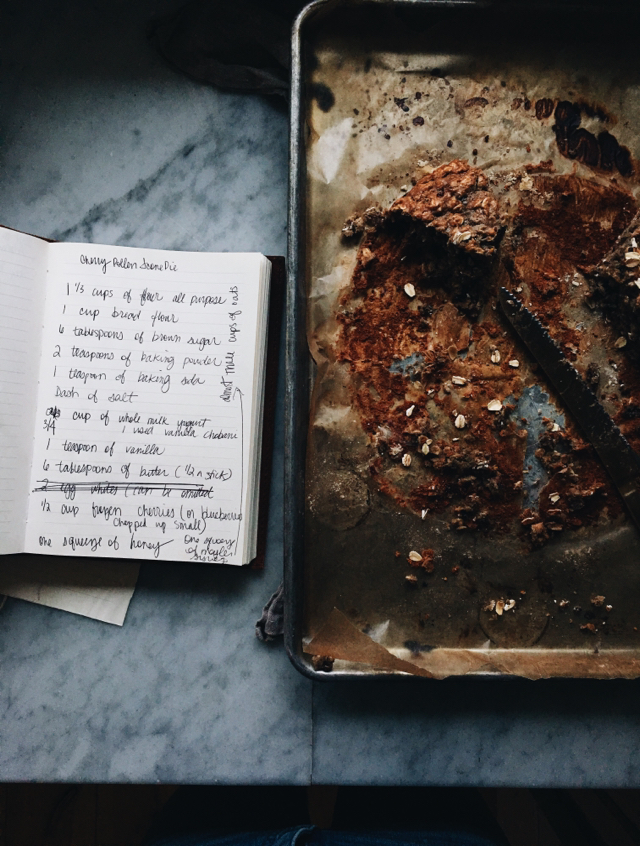 Cherry Pollen Scone Pie
1 1/3 cups of flour all purpose
1 cup bread flour
6 tablespoons of brown sugar
2 teaspoons of baking powder
1 teaspoon of baking soda
Dash of salt
3/4 cup of whole milk yogurt
I used vanilla chobani
1 teaspoon of vanilla
6 tablespoons of butter (1/2 a stick)
2 egg whites (can be omitted
1/2 cup frozen cherries (or blueberries
chopped up small)
one squeeze of honey
one squeeze
of maple
almost three cups of oats